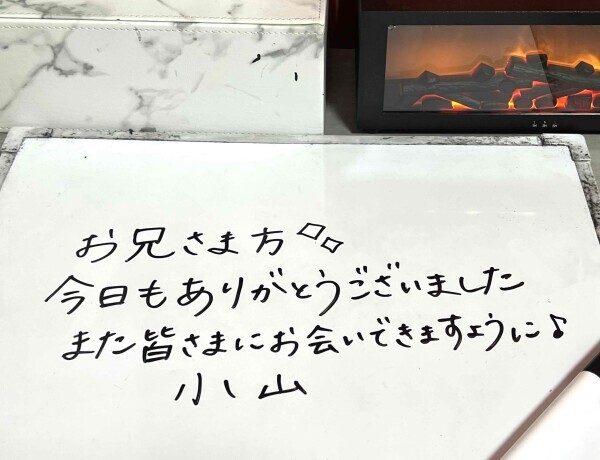 お兄さま方◇◇
今日もありがとうございました
また皆さまにお会いできますように♪
小山